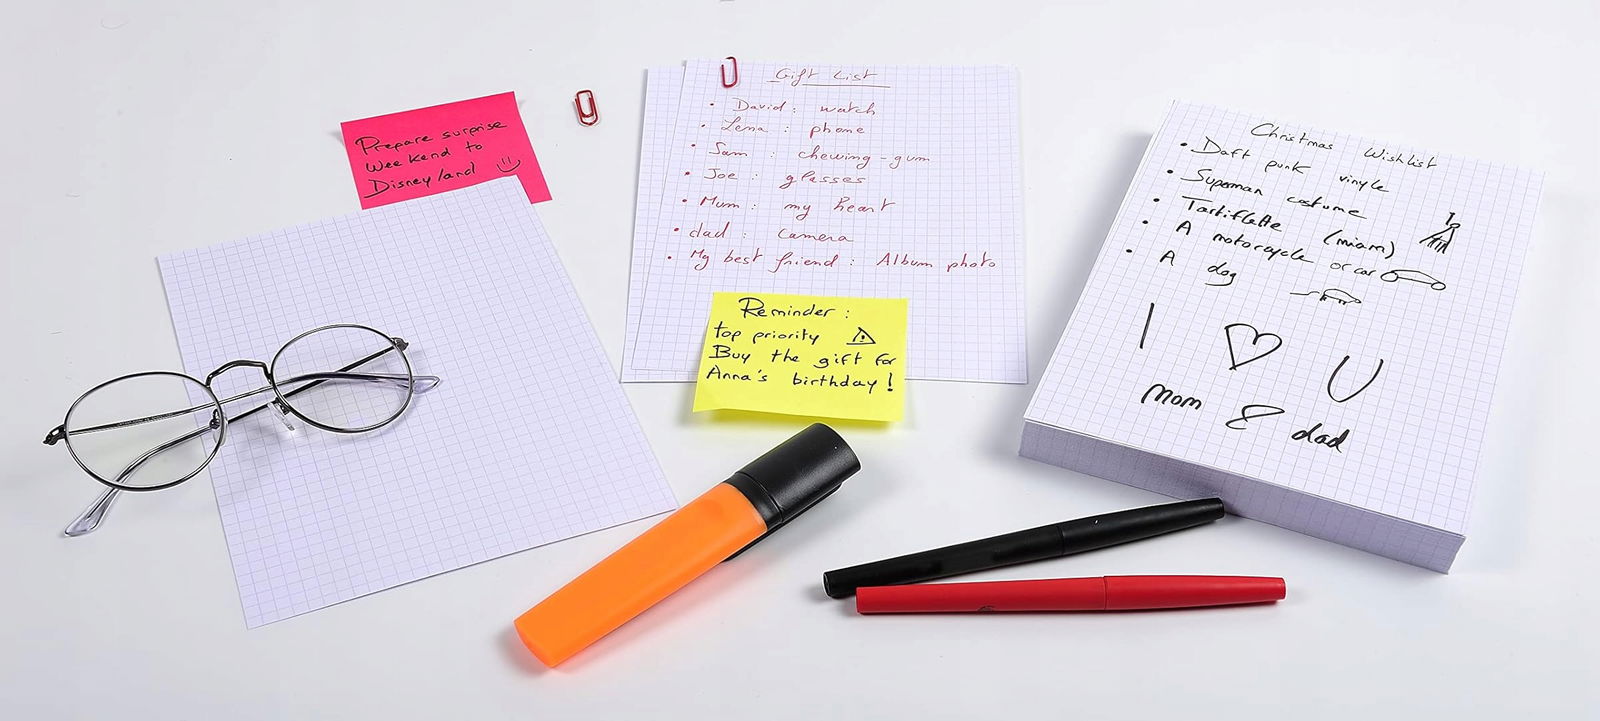 Prepare surprise
Weekend to
Disneyland
Gift List
• David : watch
• Lena : phone
• Sam : chewing-gum
• Joe : glasses
• Mum : my heart
• dad : camera
• My best friend : Album photo
Reminder :
top priority
Buy the gift for
Anna's birthday !
Christmas Wishlist
• Daft punk vinyle
• Superman costume
• Tartiflette (miam)
• A motorcycle or car
• A dog
I ♡ U
mom & dad